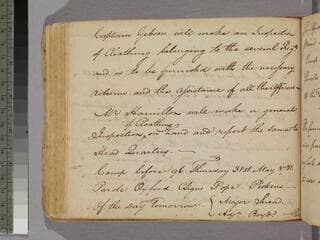 Captain Gibson will make an Inspection
of Cloathing belonging to the several Regts
and is to be furnished with the necessary
returns and the assistance of all the Officers
Mr Hamilton will make a general
of Cloathing
Inspection, on hand and report the same to
Head Quarters. —
Camp before 96 Thursday 31st May 81.
Parole Oxford Signs Pope
Of the Day Tomorrow { Major
Adjt Boyd